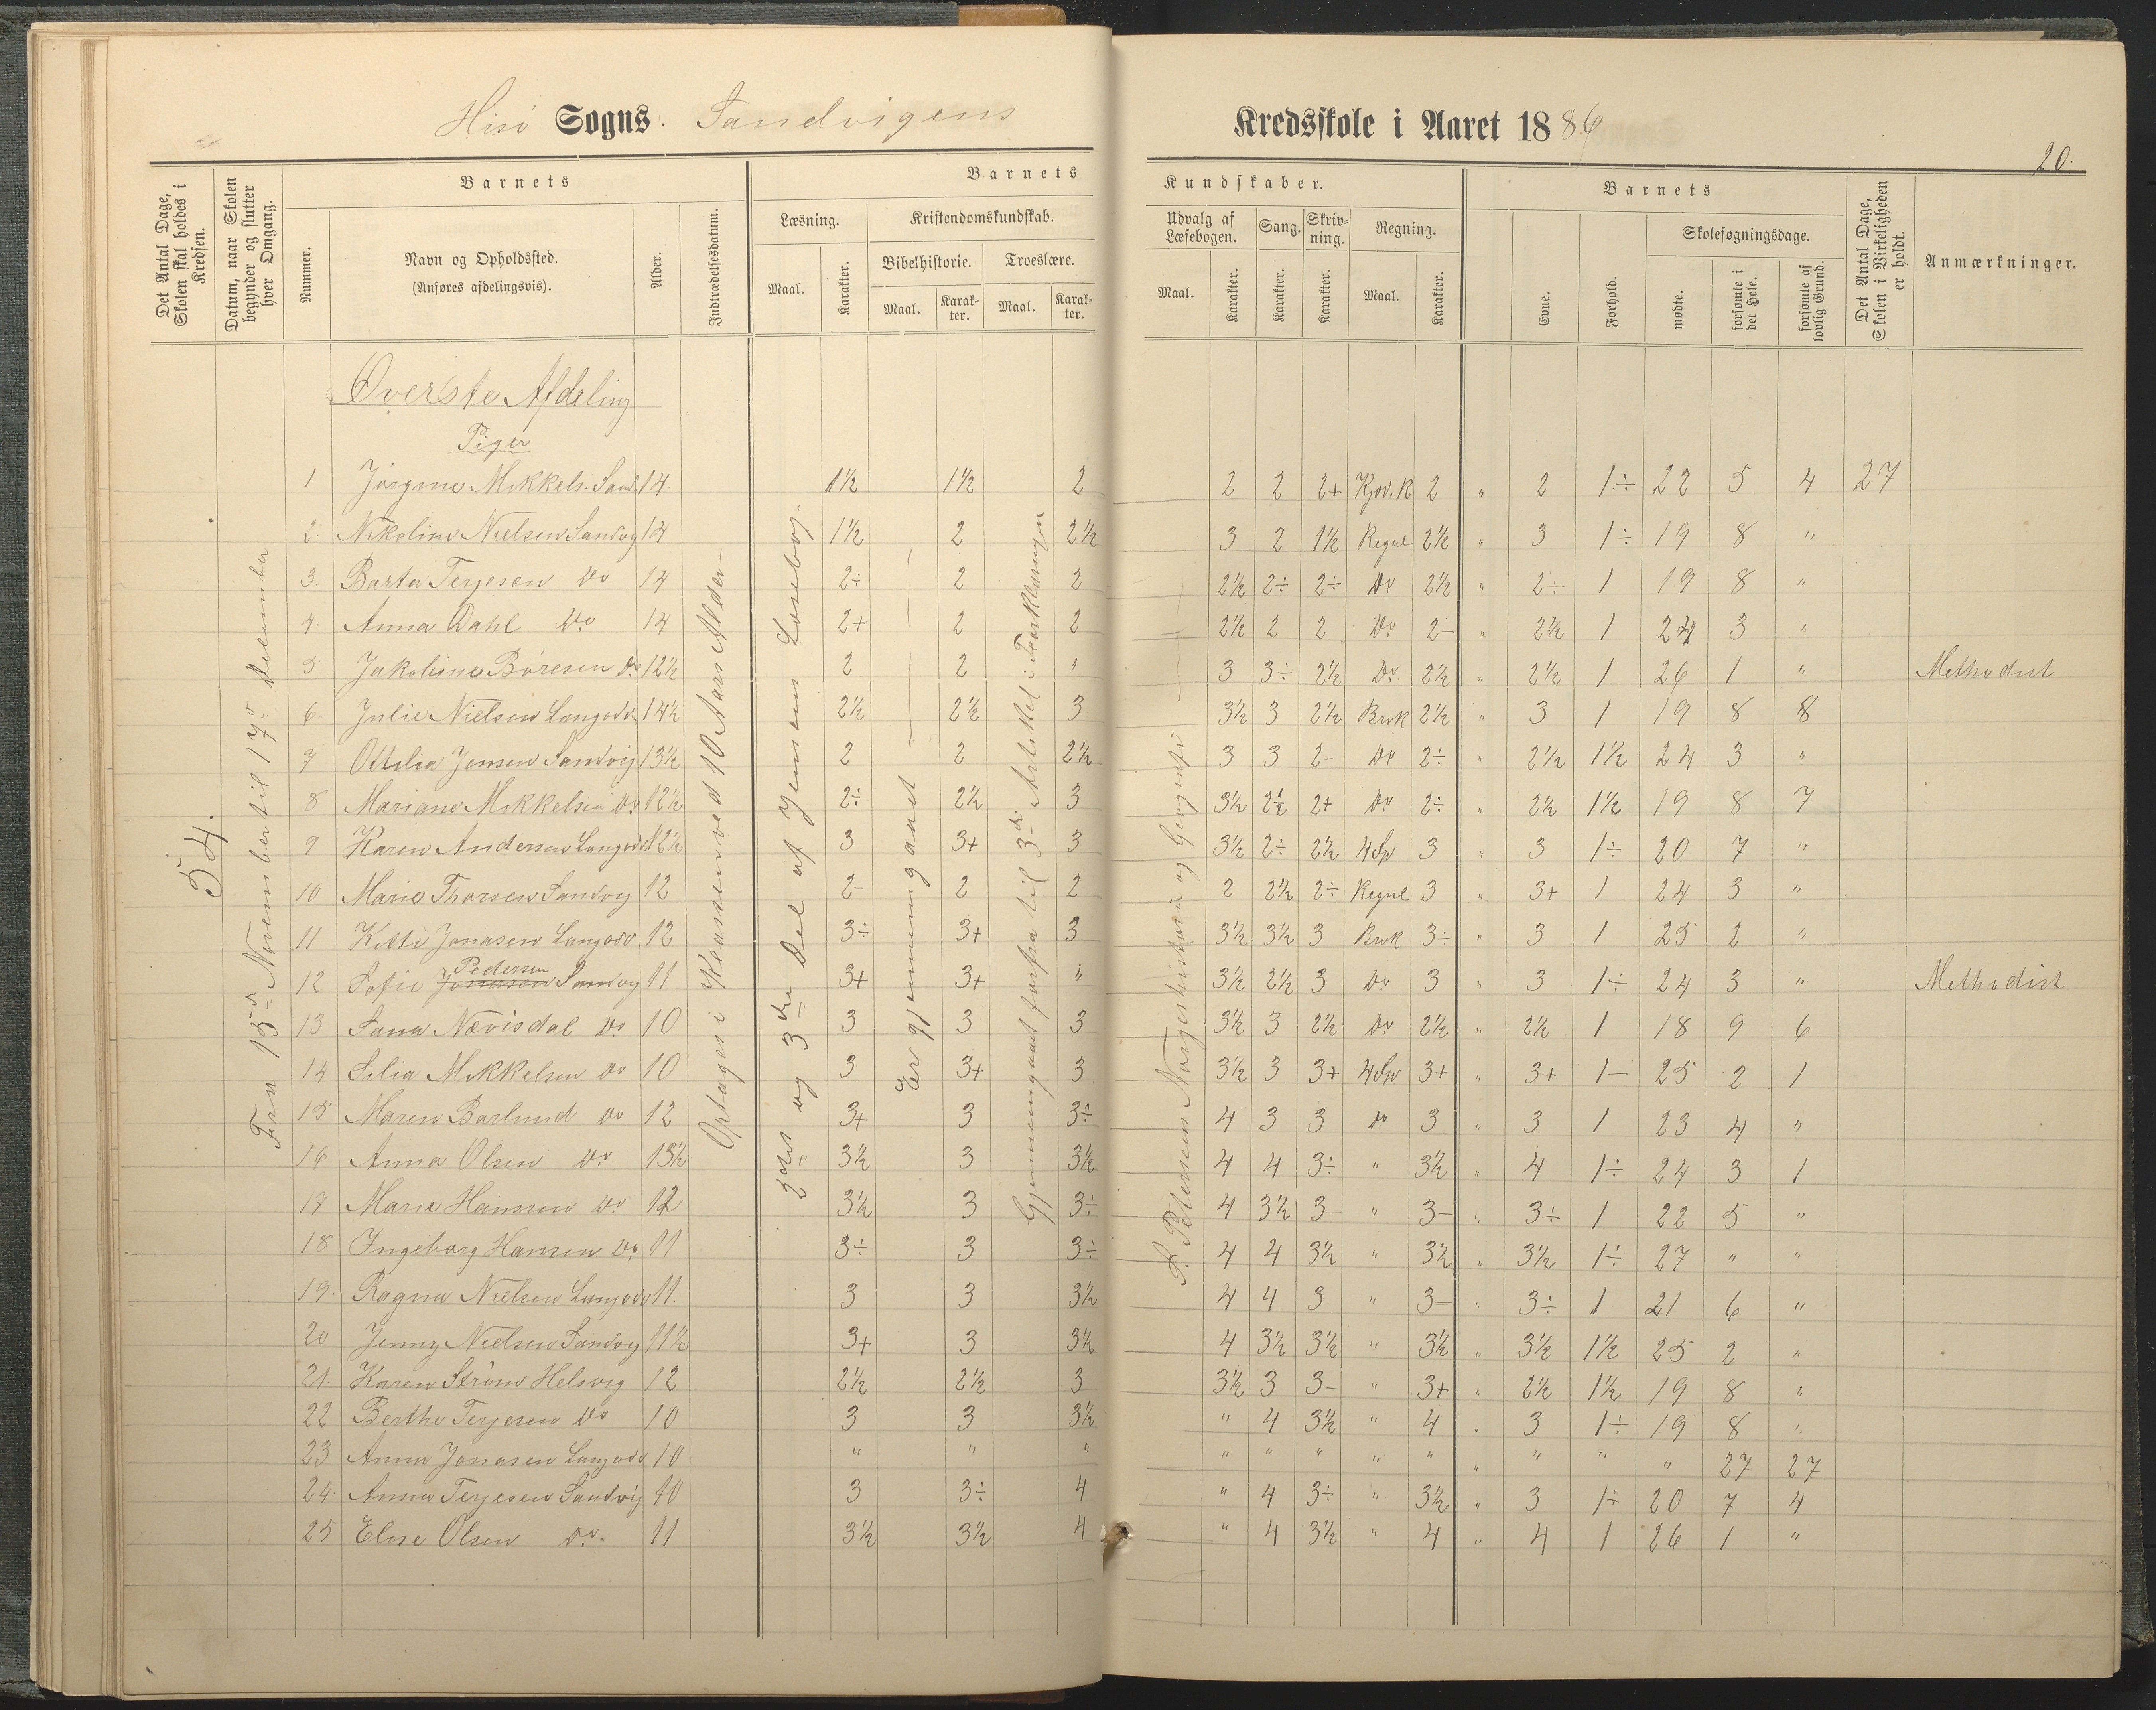 Hisø Sogns Sandvigens Kredsskole i Aaret 1886
20.
Det Antal Dage, Skolen skal holdes i Kredsen.
Datum, naar Skolen begynder og slutter hver Omgang.
Barnets
Nummer.
Navn og Opholdssted.
(Anføres afdelingsvis).
Alder.
Indtrædelsesdatum.
Barnets Kundskaber.
Læsning.
Maal.
Karakter.
Kristendomskundskab.
Bibelhistorie.
Maal.
Karakter.
Troeslære.
Maal.
Karakter.
Udvalg af Læsebogen.
Maal.
Karakter.
Sang.
Karakter.
Skrivning.
Karakter.
Regning.
Maal.
Karakter.
Barnets
Evne.
Forhold.
Skolesøgningsdage.
mødte.
forsømte i det Hele.
forsømte af lovlig Grund.
Det Antal Dage, Skolen i Virkeligheden er holdt.
Anmærkninger.
54.
Fra 15de November til 17de December
Optages i Klassen ved 10 Aars Alder
2den og 3die Del af Jensens Læsebog.
Er gjennemgaaet
Gjennemgaaet forfra til 3die Artikel i Forklaringen
P. Petersens Norgeshistorie og Geografi
Øverste Afdeling
Piger
1 Jørgine Mikkels. Sand. 14 1½ 1½ 2 2 2 2+ 2 " 2 1÷ 22 5 4 27
2 Nikoline Nielsen Sandvig 14 1½ 2 2½ 3 2 1½ Regul 2½ " 3 1÷ 19 8 "
3. Berta Terjesen Do 14 2÷ 2 2 2½ 2÷ 2÷ Do 2½ " 2÷ 1 19 8 "
4. Anna Dahl Do 14 2+ 2 2 2½ 2 2 Do 2- " 2½ 1 24 3 "
5 Jakobine Børesen Do 12½ 2 2 " 3 3÷ 2½ Do 2½ " 2½ 1 26 1 " Methodist
6. Julie Nielsen Langodd. 14½ 2½ 2½ 3 3½ 3 2½ Brøk 2½ " 3 1 19 8 8
7 Ottilia Jensen Sandvig 13½ 2 2 2½ 3 3 2- Do 2÷ " 2½ 1½ 24 3 "
8 Mariane Mikkelsen Do 12½ 2÷ 2½ 3 3½ 2½ 2+ Do 2÷ " 2½ 1½ 19 8 7
9 Karen Andersen Langodd 12½ 3 3+ 3 3½ 2÷ 2½ 4 Sp 3 " 3 1÷ 20 7 "
10 Marie Thorsen Sandvig 12 2- 2 2 2 2½ 2÷ Regul 3 " 3+ 1 24 3 "
11 Kitti Jonasen Langodd 12 3÷ 3+ 3 3½ 3½ 3 Brøk 3÷ " 3 1 25 2 "
12 Sofie Jonasen Pedersen Sandvig 11 3+ 3+ " 3½ 2½ 3 Do 3 " 3 1÷ 24 3 " Methodist
13 Sana Nævisdal Do 10 3 3 3 3½ 3 2½ Do 2½ " 2½ 1 18 9 6
14 Silia Mikkelsen Do 10 3 3+ 3 3½ 3 3+ 4 Sp 3+ " 3+ 1- 25 2 1
15 Maren Barlund Do 12 3+ 3 3÷ 4 3 3 Do 3 " 3 1 23 4 "
16 Anna Olsen Do 13½ 3½ 3 3½ 4 4 3÷ " 3½ " 4 1÷ 24 3 1
17 Marie Hansen Do 12 3½ 3 3÷ 4 3½ 3- " 3- " 3÷ 1 22 5 "
18 Ingeborg Hansen Do 11 3÷ 3 3÷ 4 4 3½ " 3½ " 3½ 1÷ 27 " "
19. Ragna Nielsen Langodd 11 3 3 3½ 4 4 3 " 3- " 3÷ 1 21 6 "
20 Jenny Nielsen Sandvig 11½ 3+ 3 3½ 4 3½ 3½ " 3½ " 3½ 1½ 25 2 "
21. Karen Strøm Helsvig 12 2½ 2½ 3 3½ 3 3- " 3+ " 2½ 1½ 19 8 "
22 Berthe Terjesen Do 10 3 3 3½ " 4 3½ " 4 " 3 1÷ 19 8 "
23 Anna Jonasen Langodd 10 " " " " " " " " " " " " 27 27
24. Anna Terjesen Sandvig 10 3 3÷ 4 " 4 3÷ " 3½ " 3 1÷ 20 7 4
25 Elise Olsen Do. 11 3½ 3½ 4 " 4 3½ " 4 " 4 1 26 1 "